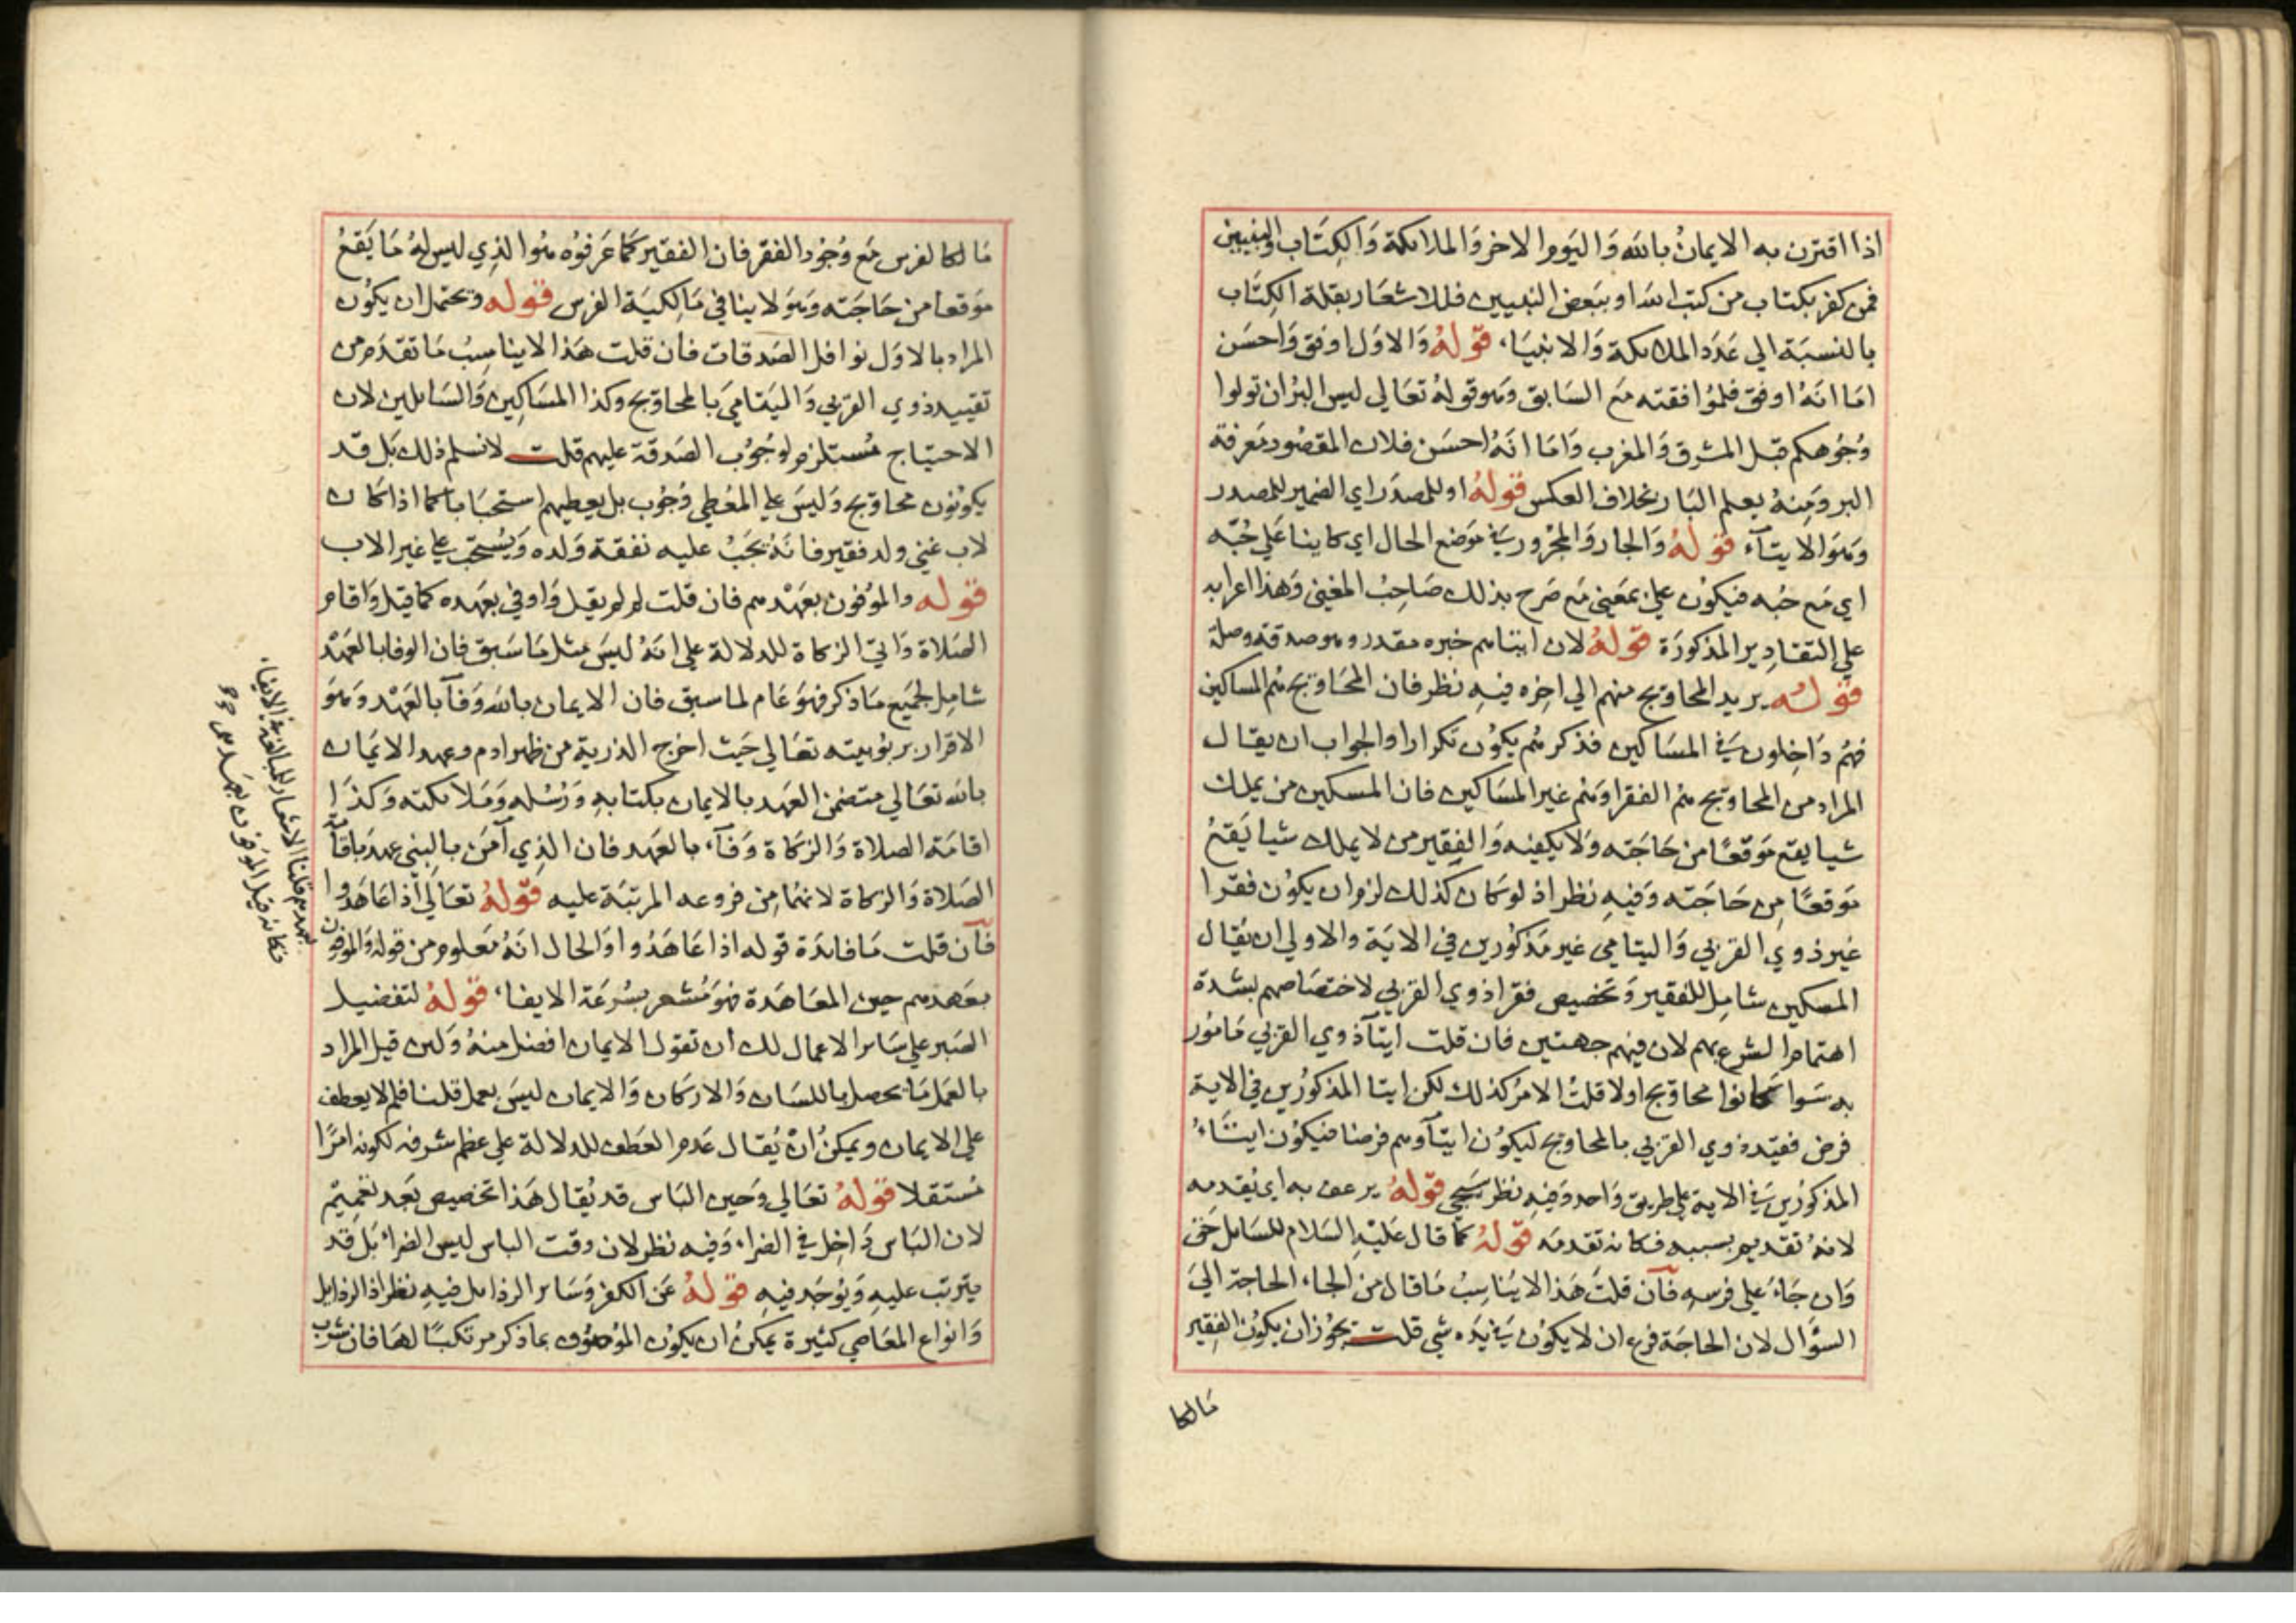 اذا اقترن به الايمان بالله وَاليَوم الاخر وَالملائكة وَالكِتَاب والنبيين
فمن كفر بكتاب من كتب الله او ببَعض النبيين فللاشعَار بقلة الكِتَاب
بالنسبَة الي عَدَد الملائكة وَالانبيَاء، قولهُ وَالاوَل اوفق وَاحسَن
امَا انهُ اوفق فلمُوافقته مَع السَابق وَهو قولهُ تعَالي ليس البرُ ان تولوا
وُجُوهكم قبَل المشرق وَالمغرب وَامَا انهُ احسَن فلان المقصُود مَعرفة
البر وَمِنهُ يعلم البَار بخلاف العكس قولهُ او للمصدَر اي الضمير للمصدر
وَهوَ الايتآء قولهُ وَالجار وَالمجرور في مَوضع الحال اي كاينا عَلي حُبّه
اي مَع حبُه فيكوُن علي بمعَني مَع صَرح بذلك صَاحِبُ المغني وَهذا اعرابه
علي التقادِير المذكورَة قولهُ لان ايتاهم خبره مقدر وهو صدقة وصلة
قولهُ يريد المحاويج منهم الي اخِره فيهِ نظر فان المحَاويج هُم المساكين
فهُم دَاخِلون في المسَاكين فذكرهُم يكوُن تكرارا والجواب ان يقال
المراد من المحاويج هم الفقرا وَهم غير المسَاكين فان المسكين من يملك
شيا يقع مَوقعًا من حَاجَته وَلا يكفيه وَالفقير من لا يملك شيا يَقعُ
مَوقعًا مِن حَاجَته وَفيهِ نظر اذ لو كان كذلك لزم ان يكوُن فقرا
غير ذوي القربي وَاليتامي غير مَذكوُرين في الايَة والاولي ان يُقال
المسكين شامِل للفقير وَتخصيص فقرا ذوي القربي لاختصَاصهم بشدة
اهتمام الشرع بهم لان فيهم جهتين فان قلت ايتآ ذوي القربي مَامُور
به سَوا كانوا محاويج اولا قلتُ الامرُ كذلك لكن ايتا المذكورين في الاية
فرض فقيّد ذوي القربي بالمحاويج ليكوُن ايتآوهم فرضا فيكوُن ايتَاءُ
المذكورُين في الاية علي طريق وَاحد وَفيهِ نظر سَيجي قولهُ يرعف به اي يُقدمه
لانهُ تقديم بسببه فكانه تقدمَه قولهُ كما قال عَليهِ السَلام للسَايل حَق
وَان جَاءَ علي فرسهِ فان قلتَ هَذا لا يُناسِبُ مَا قال من الجاء الحاجة الي
السؤال لان الحاجَة فرع ان لا يكوُن في يَده شي قلت يجوُز ان يكوُن الفقير
مَالكا
مَالكا لفرس مَع وُجوُد الفقر فان الفقير كما عَرفوُه هُوا لذِي ليس لهُ مَا يَقعُ
مَوقعا من حَاجَته وَهوَ لا ينافي مَالِكيَة الفرس قوله وَيحتمل ان يكوُن
المراد بالاوَل نوافل الصَدقات فان قلت هَذا لا يناسِبُ مَا تقدَم من
تقييد ذوي القربي وَاليَتامي بَالمحاويج وكذا المسَاكِين وَالسَايلين لان
الاحتياج مُستلزم لوجُوُب الصَدقة عليهم قلت لا نسلم ذلك بَل قد
يكونوُن محاويج وَليسَ علي المعُطِي وُجُوب بل يعطيهم استحبَابا كما اذا كان
لاب غني ولد فقير فانهُ يجَبُ عليه نفقة وَلده وَيُستحَبّ علي غير الاب
قوله والموُفون بعَهدهم فان قلت لم لم يقيل وَاوفي بعَهده كما قيل وَاقام
الصَلاة وَاتي الزكاة للدلالة علي انهُ ليسَ مثل مَا سَبق فان الوفا بالعَهْد
شامِل لجَميَع مَا ذكر فهوَ عَام لما سبق فان الايمان بالله وَفآ بالعَهْد وَهوَ
الاقرار بربوُبيته تعَالي حَيث اخرج الذرية من ظهر ادم وعهد الايمَان
بالله تعَالي متضمن العَهد بالايمان بكتابهِ وَرُسُله وَمَلائكته وَكذَا
اقامَة الصلاة وَالزكاة وَفآء بالعَهد فان الذِي آمَن بالبني عهد باقامة
الصَلاة وَالزكاة لانهمُا مِن فروعه المرتبَة عليه قولهُ تعَالي اذا عَاهَدوا
فآن قلت مَا فائدَة قوله اذا عَاهَدُوا وَالحال انَهُ مَعلوم من قوله وَالموفون
بعَهدهم حين المعَاهَدة فهوَ مُشعر بسُرعَة الايفا، قولهُ لتفضيل
الصَبر علي سَاير الاعمال لك ان تقول الايمان افضل منهُ وَلين قيل المراد
بالعَمل مَا يحصل باللسَان وَالاركان وَالايمان ليسَ بعمل قلنا فلم لا يعطف
علي الايمان ويمكنُ ان يُقال عَدم العَطف للدلالة علي عظم شرفه لكونه امرًا
مُستقلا قولهُ تعَالي وَحين البَاس قد يُقال هَذا تخصيص بَعد تعميم
لان البَاس دَاخِل في الضراء وَفيه نظر لان وقت الباس ليس الضراء بَل قد
يترتب عليهِ وَيوُجَد فيهِ قولهُ عَن الكفر وَسَاير الرذايل فيهِ نظر اذ الرذايل
وَانواع المعَاصي كثيرة يمكنُ ان يكوُن الموُصوُف بماذكر مرتكبًا لهَا فان شرب
بعهدهم قلنا الاشعار للمبالغة في الايفا،
فكانه قيل الموفون بعهدهم